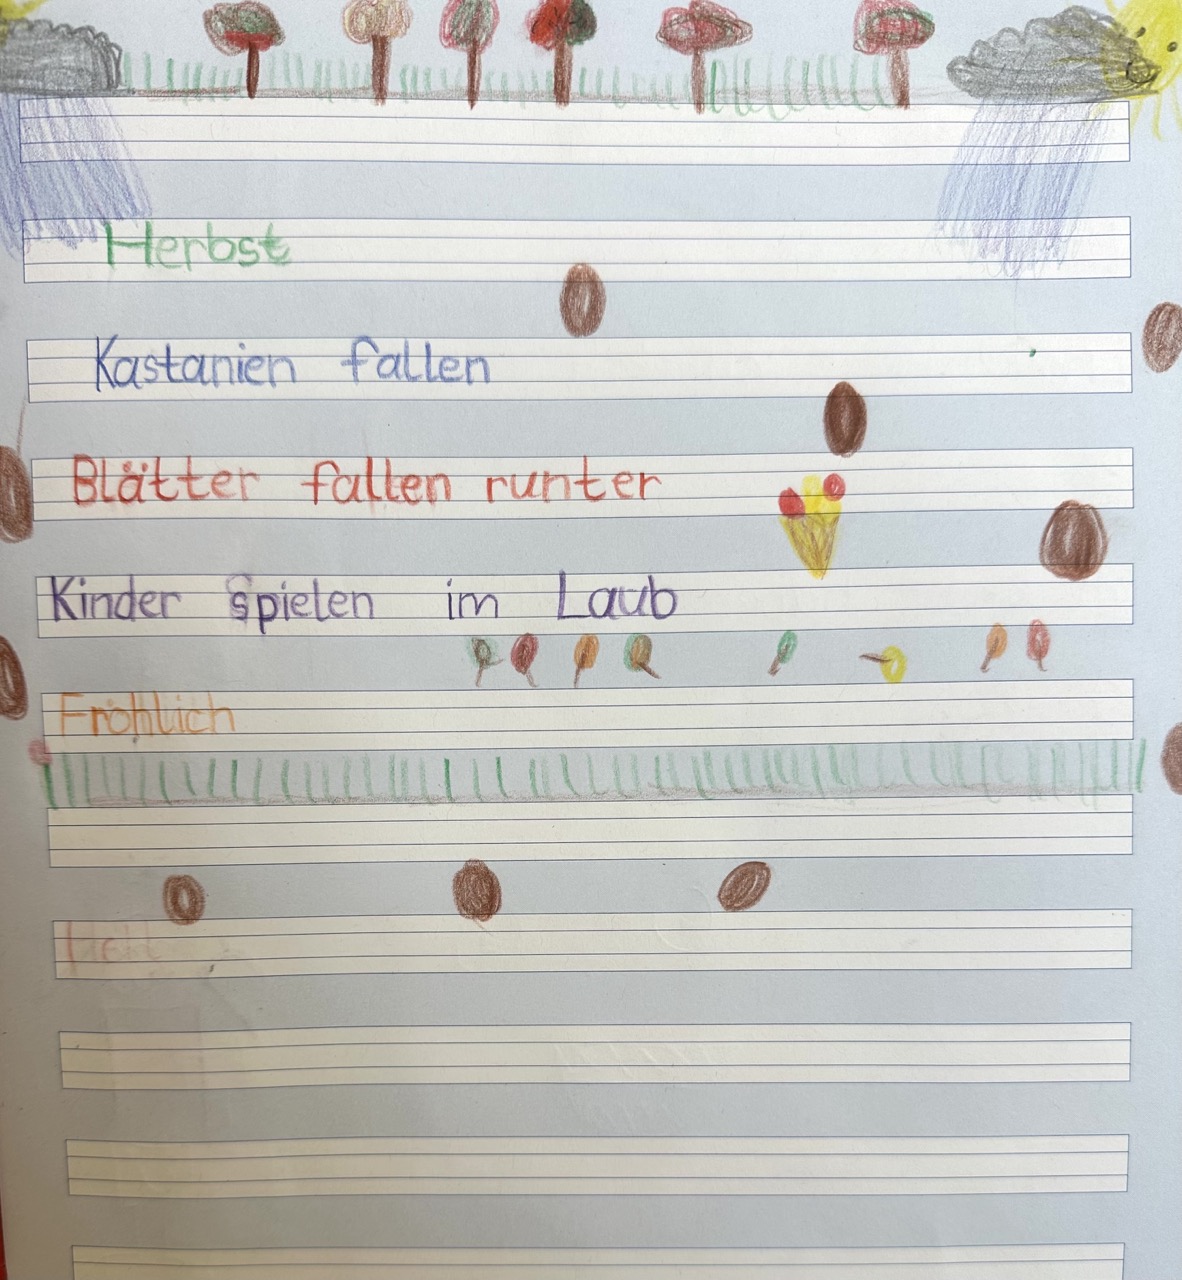 Herbst
Kastanien fallen
Blätter fallen runter
Kinder spielen im Laub
Fröhlich